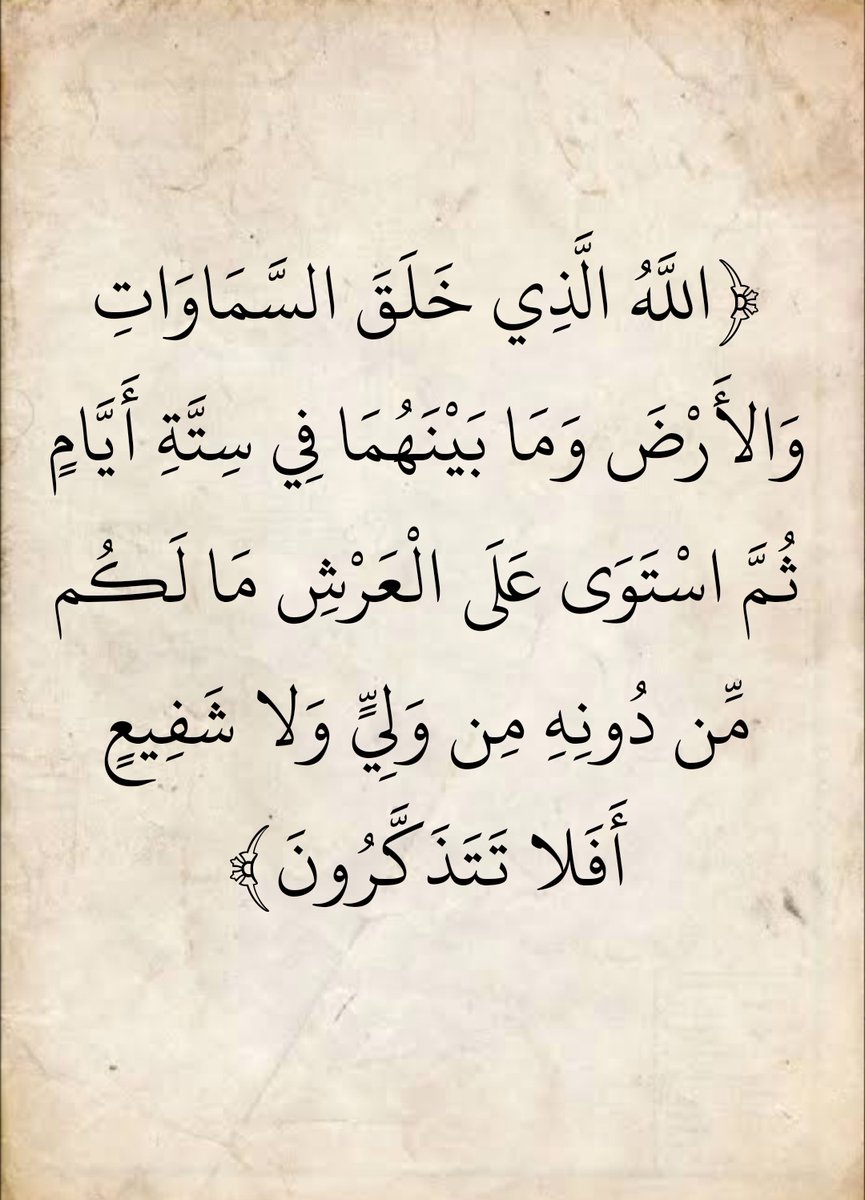 ﴿اللَّهُ الَّذِي خَلَقَ السَّمَاوَاتِ
وَالأَرْضَ وَمَا بَيْنَهُمَا فِي سِتَّةِ أَيَّامٍ
ثُمَّ اسْتَوَى عَلَى الْعَرْشِ مَا لَكُم
مِّن دُونِهِ مِن وَلِيٍّ وَلا شَفِيعٍ
أَفَلا تَتَذَكَّرُونَ﴾